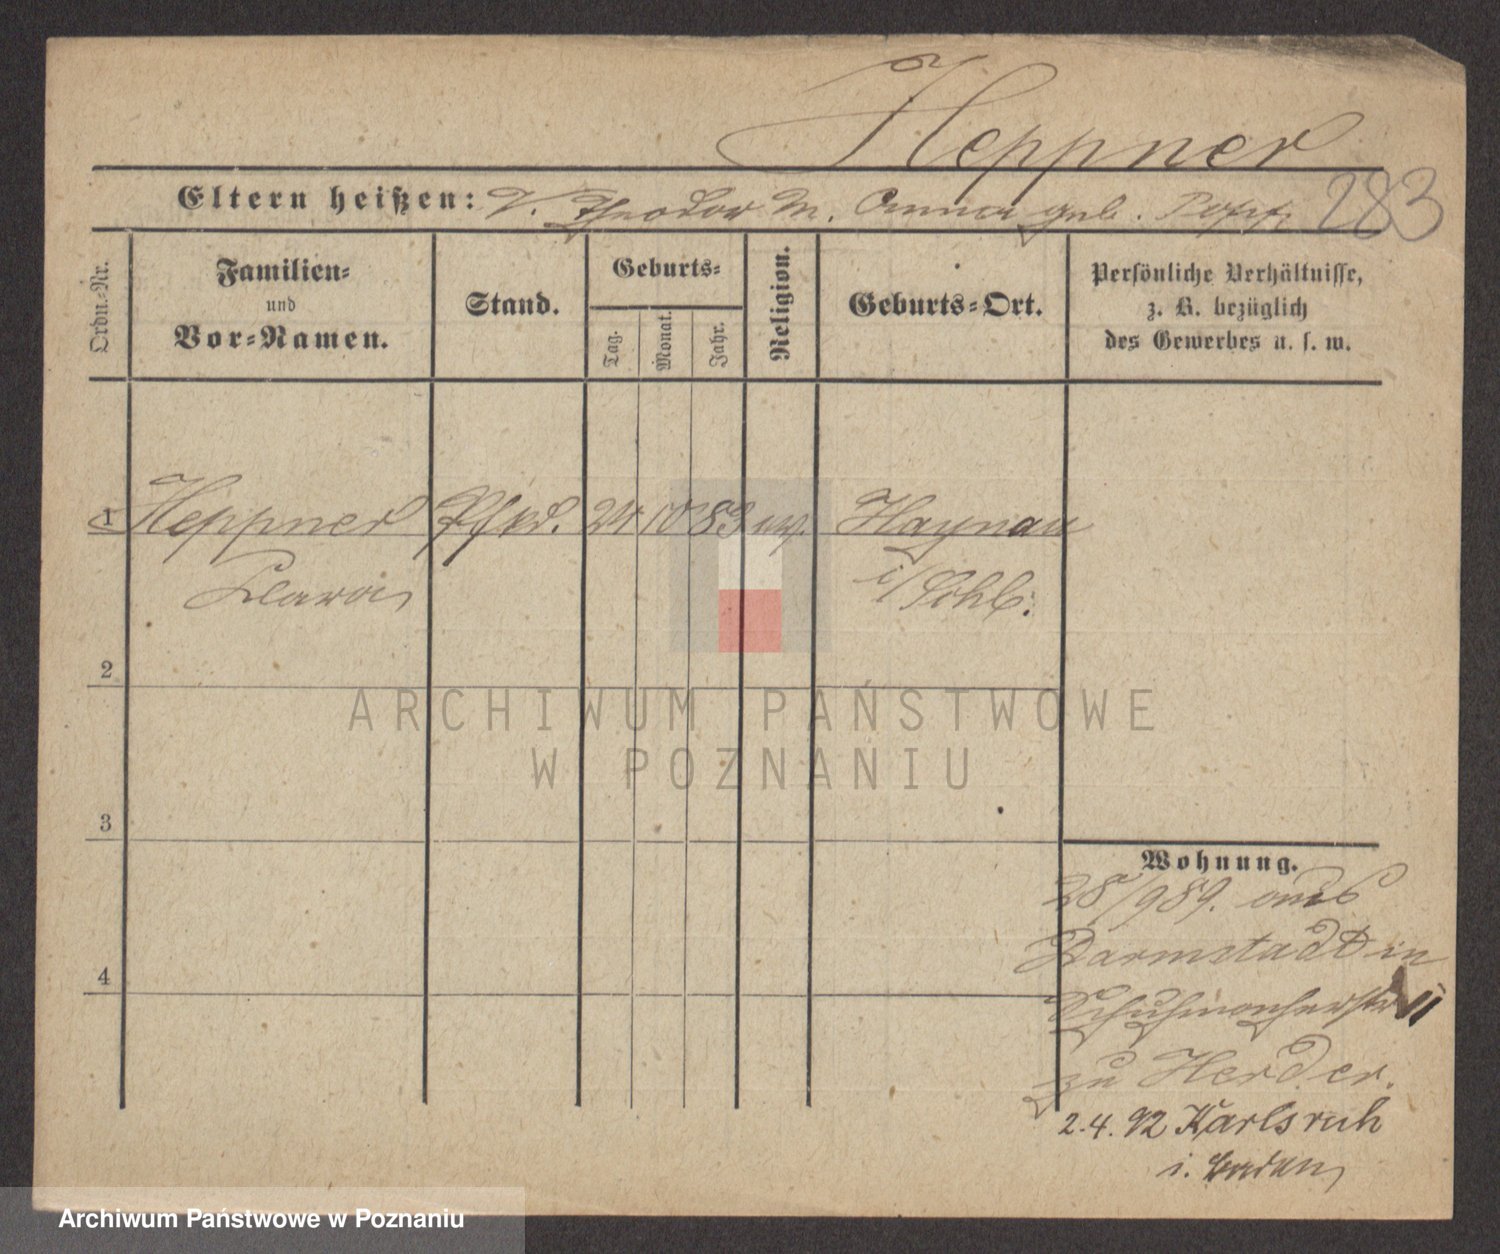 Heppner
Eltern heißen: V. Theodor M. Anna geb. 283
Ordn.-Nr.
Familien-
und
Vor-Namen.
Stand.
Geburts-
Tag.
Monat.
Jahr.
Religion.
Geburts-Ort.
Persönliche Verhältnisse,
z. B. bezüglich
des Gewerbes u. s. w.
1 Heppner Pflkd. 24 10 83 ev. Haynau
Clara i/Schl.
2
ARCHIWUM PAŃSTWOWE
W POZNANIU
3
Wohnung.
28/9 89. aus
Darmstadt in
Schuhmacherstr 11
zu Herder.
4
2.4.92 Karlsruh
i. Baden
Archiwum Państwowe w Poznaniu